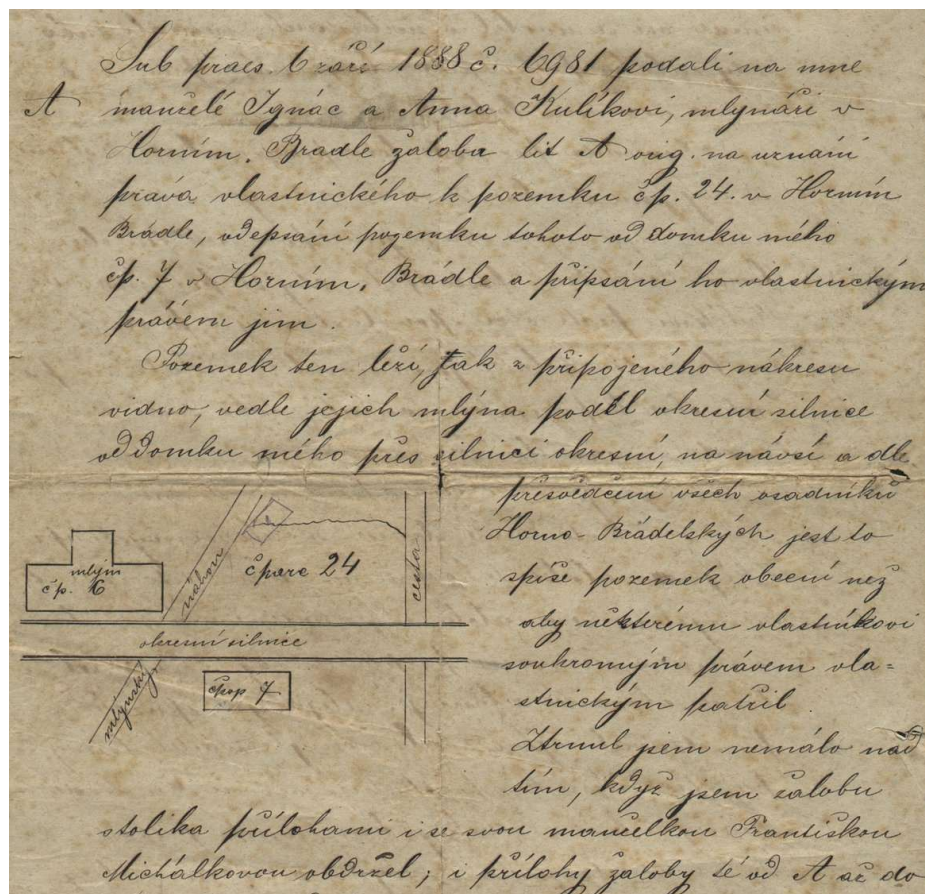 Sub praes. 6 září 1888 č. 6981 podali na mne
A manželé Ignác a Anna Kulíkovi, mlynáři v
Horním. Bradle žaloba lit A orig. na uznání
práva vlastnického k pozemku čp. 24. v Horním
Brádle, odepsání pozemku tohoto od domku mého
čp. 7 v Horním. Brádle a připsání ho vlastnickým
právem jim.
Pozemek ten leží, jak z připojeného nákresu
vidno, vedle jejich mlýna podél okresní silnice
od domku mého přes silnici okresní, na návsi a dle
přesvědčení všech osadníků
Horno-Brádelských jest to
spíše pozemek obecní než
aby některému vlastníkovi
soukromým právem vla=
stnickým patřil.
Ztrnul jsem nemálo nad
tím, když jsem žalobu
mlýn
čp. 6
náhon
č parc 24
cesta
okresní silnice
mlýnský
čpop 7.
stolika přílohami i se svou manželkou Františkou
Michálkovou obdržel; i přílohy žaloby té od A až do